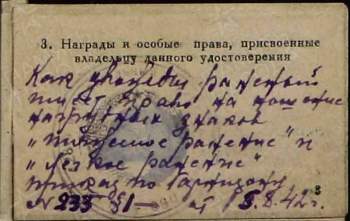 3. Награды и особые права, присвоенные
владельцу данного удостоверения
Как дважды раненый
имеет право на ношение
нагрудных знаков
"тяжелое ранение" и
"легкое ранение"
приказ по Гарнизону
№ 233 §1 от 5.8.42г.